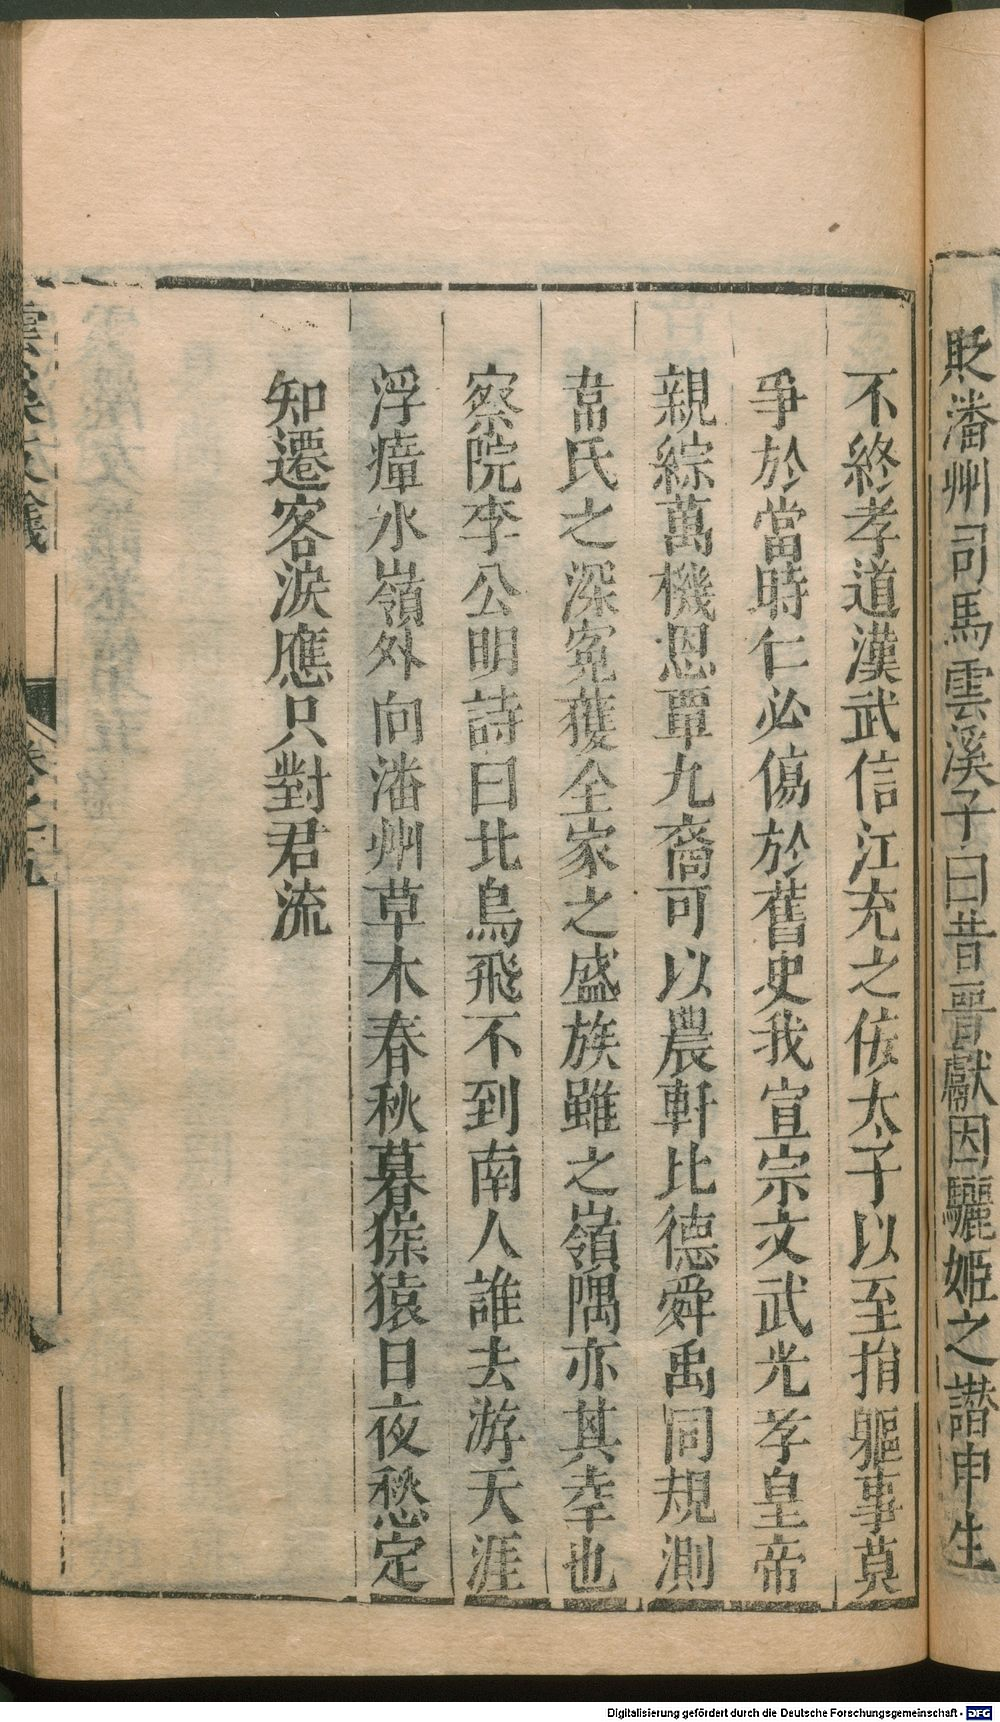 貶潘州司馬雲溪子曰昔晋獻因驪姬之譖申生
不終孝道漢武信江充之佞太子以至捐軀事莫
爭於當時仁必傷於舊史我宣宗文武光孝皇帝
親綜萬機恩覃九裔可以農軒比德舜禹同規測
韋氏之深寃獲全家之盛族雖之嶺隅亦其幸也
察院李公明詩曰北鳥飛不到南人誰去游天涯
浮瘴水嶺外向潘州草木春秋暮猨猿日夜愁定
知遷客淚應只對君流
雲溪友議
卷之九
八
Digitalisierung gefördert durch die Deutsche Forschungsgemeinschaft - DFG